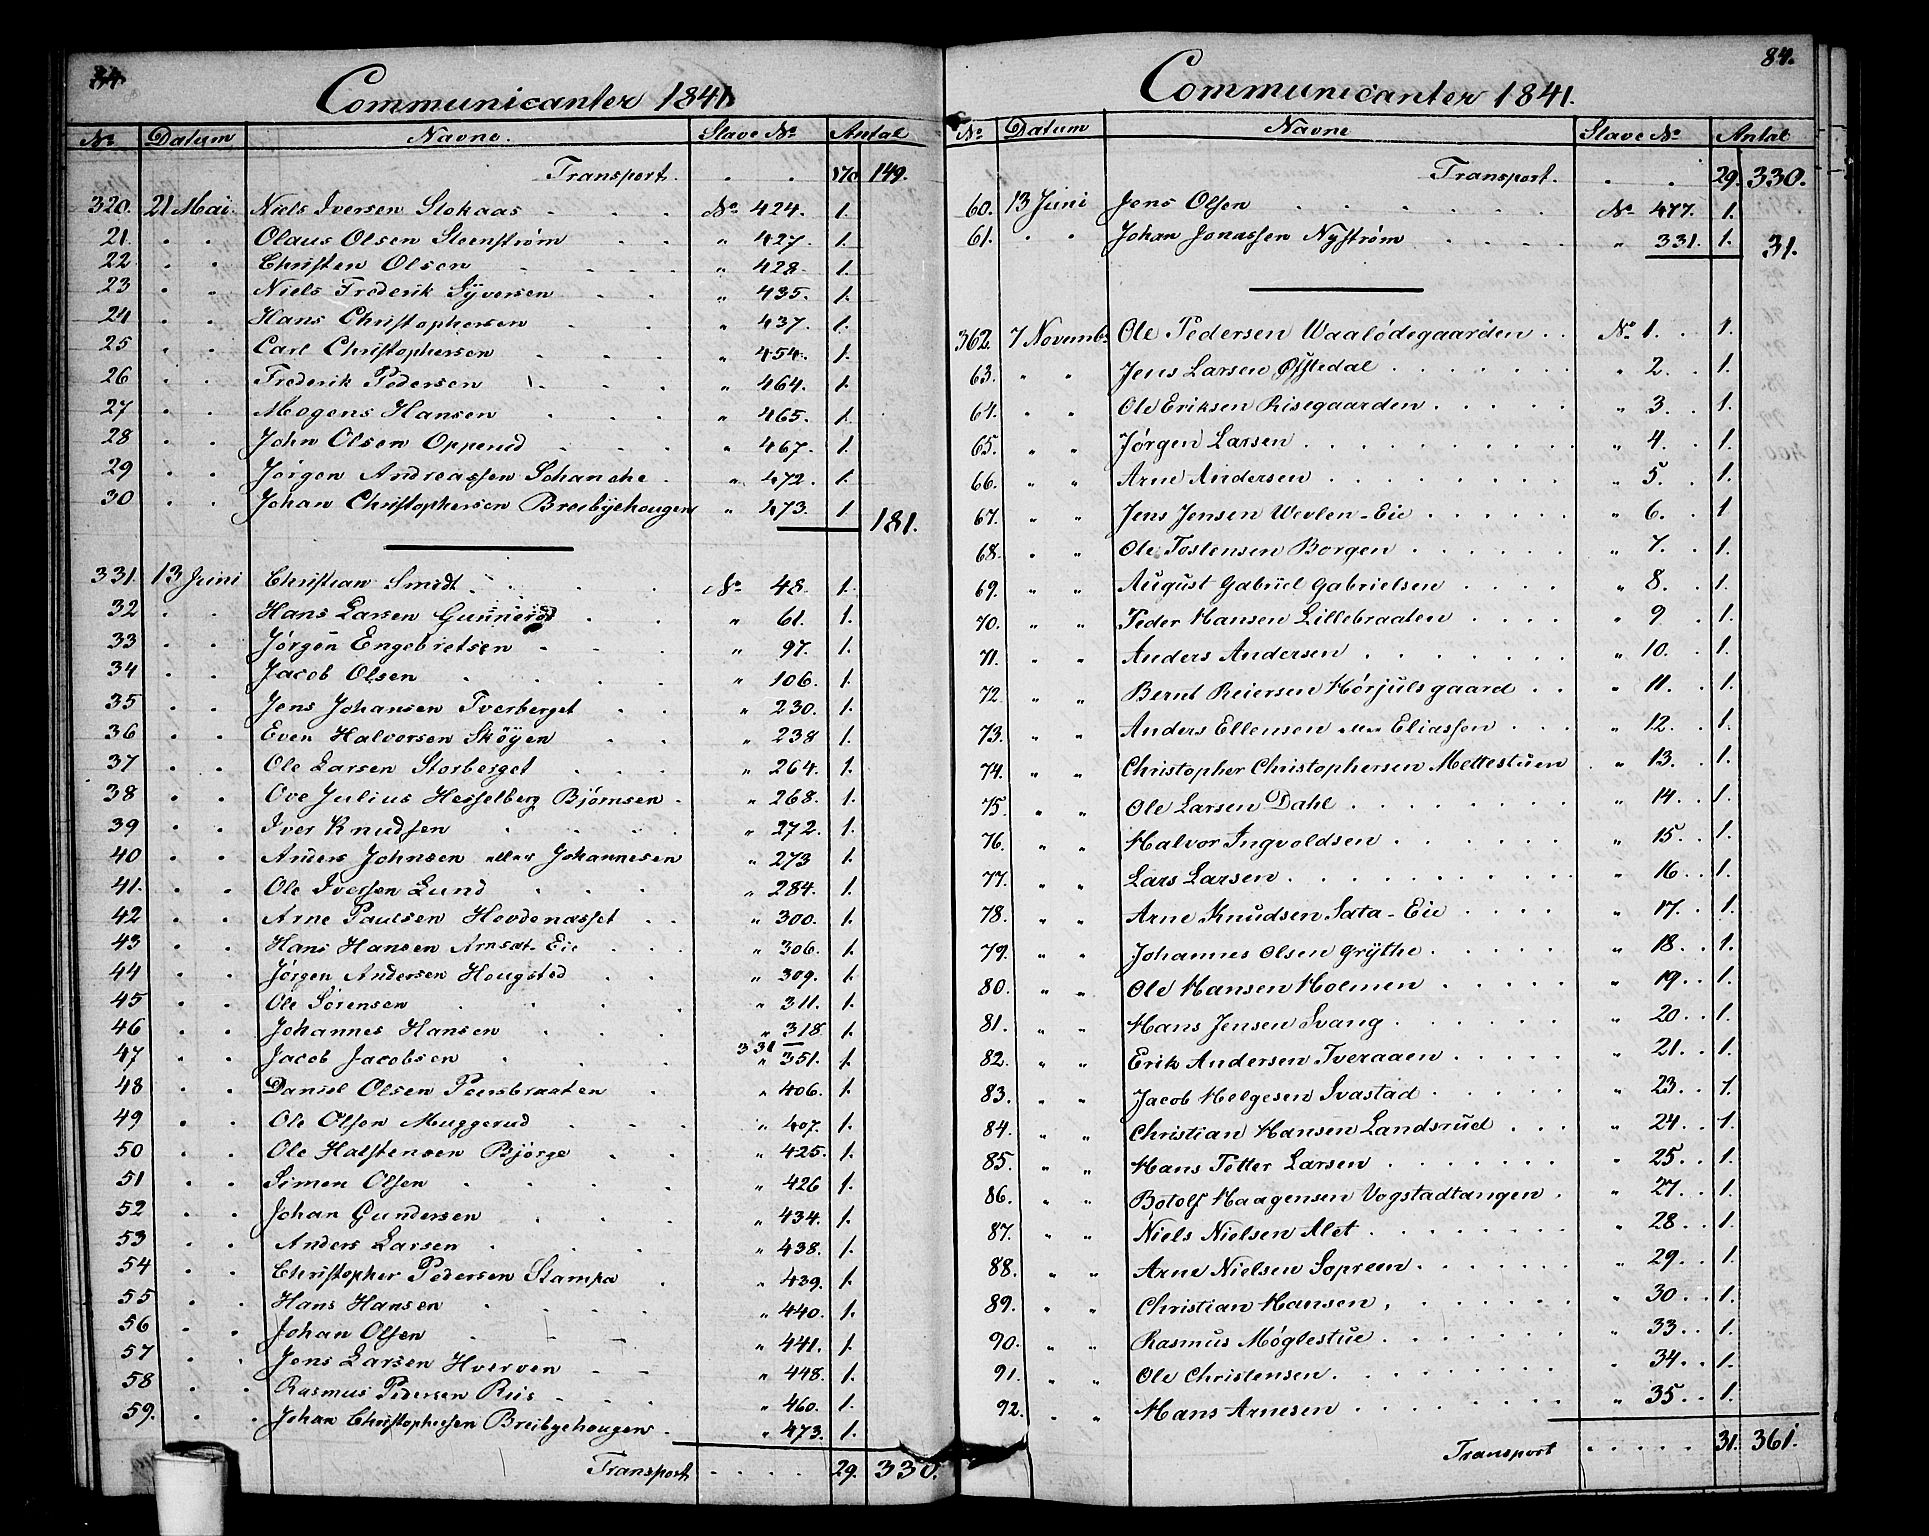 Communicanter 1841
No Datum Navne. Slave No Antal
Transport. . . 170 149.
320. 21 Mai. Niels Iversen Stokaas . . . No 424. 1.
21. . . Olaus Olsen Steenstrøm . . " 427. 1.
22 . . Christen Olsen . . . . " 428. 1.
23 . . Niels Frederik Syversen . . " 435. 1.
24 . . Hans Christophersen . . " 437. 1.
25 . . Carl Christophersen . . . " 454. 1.
26 . . Frederik Pedersen . . . " 464. 1.
27 . . Mogens Hansen . . . " 465. 1.
28 . . John Olsen Opperud . . . " 467. 1.
29 . . Jørgen Andreassen Schanche . " 472. 1.
30 . . Johan Christophersen Breibyehougen " 473. 1 181.
331. 13 Juni Christian Smidt . . . . No 48. 1.
32 . . Hans Larsen Gunnerød . . " 61. 1.
33 . . Jørgen Engebretsen . . . " 97. 1.
34 . . Jacob Olsen . . . . " 106. 1.
35 . . Jens Johansen Tverberget . . " 230. 1.
36 . . Even Halvorsen Skøyen . . " 238 1.
37 . . Ole Larsen Storberget . . . " 264. 1.
38 . . Ove Julius Hesselberg Bjørnsen . " 268. 1.
39 . . Iver Knudsen . . . . " 272. 1.
40 . . Anders Johnsen eller Johannesen " 273 1.
41. . . Ole Iversen Lund . . . " 284. 1.
42 . . Arne Paulsen Hovdenasset . . " 300. 1.
43 . . Hans Hansen Arnsat-Eie . . . " 306. 1.
44 . . Jørgen Andersen Hougsted . . " 309. 1.
45 . . Ole Sørensen . . . . " 311. 1.
46 . . Johannes Hansen . . . " 318 1.
47 . . Jacob Jacobsen . . . 331 " 351. 1.
48 . . Daniel Olsen Poersbraaten . " 406. 1.
49 . . Ole Olsen Muggerud . . . " 407. 1.
50 . . Ole Halstensen Bjørge . . " 425. 1.
51 . . Simen Olsen . . . . " 426 1.
52 . . Johan Gundersen . . . " 434. 1.
53 . . Anders Larsen . . . . " 438. 1.
54 . . Christopher Pedersen Stampe . " 439. 1.
55 . . Hans Hansen . . . . " 440. 1.
56 . . Johan Olsen . . . " 441. 1.
57 . . Jens Larsen Hverven . . " 448. 1.
58 . . Rasmus Pedersen Riis . . . " 460. 1.
59. . . Johan Christophersen Breibyehougen . " 473. 1.
Transport . . . . 29. 330.
84.
Communicanter 1841.
No Datum Navne Slave No Antal
Transport. . . 29. 330.
60. 13 Juni Jens Olsen . . . . . . No 477. 1.
61. . " Johan Jonassen Nystrøm . . . . " 331. 1. 31.
362. 7 Novembr Ole Pedersen Waalødegaarden . . No 1. . 1.
63. " " Jens Larsen Øfstedal . . . . . . " 2. . 1.
64. " " Ole Eriksen Risegaarden . . . . . " 3. . 1.
65. " " Jørgen Larsen . . . . . . . . " 4. . 1.
66. " " Arne Andersen . . . . . . . . " 5. . 1.
67. " " Jens Jensen Wevlen-Eie . . . . . " 6. . 1
68. . " Ole Tostensen Borgen . . . . . . " 7. . 1.
69. " " August Gabriel Gabrielsen . . . . " 8. . 1.
70. " " Peder Hansen Lillebraaten . . . . " 9 . 1.
71. " " Anders Andersen . . . . . . . " 10. . 1.
72 " " Bernt Reiersen Hørjulsgaard . . " 11. . 1.
73. " " Anders Ellensen eller Eliassen . . . " 12. . 1.
74. " " Christopher Christophersen Mettestuen . " 13. . 1.
75 " " Ole Larsen Dahl . . . . . . . " 14. . 1.
76. " " Halvor Ingvoldsen . . . . . . " 15. . 1.
77. " " Lars Larsen . . . . . . . . . " 16. . 1.
78. " " Arne Knudsen Sata-Eie . . . . " 17. . 1.
79. " " Johannes Olsen Grythe . . . . . " 18. . 1.
80. " " Ole Hansen Holmen . . . . . " 19. . 1.
81. " " Hans Jensen Svang . . . . . . " 20. . 1.
82. " " Erik Andersen Tveraaen . . . . . " 21. . 1.
83. " " Jacob Helgesen Svastad . . . . . " 23. . 1.
84. " " Christian Hansen Landsrud . . . " 24. . 1.
85. " " Hans Petter Larsen . . . . . . " 25. . 1.
86. " " Botolf Haagensen Vogstadtangen . " 27. . 1.
87. " " Niels Nielsen Alet . . . . . . " 28. . 1.
88. " " Arne Nielsen Sopreen . . . . . " 29. . 1.
89. " " Christian Hansen . . . . . . " 30. . 1.
90. " " Rasmus Møglestue . . . . . . " 33. . 1.
91. " " Ole Christensen . . . . . . . " 34. . 1.
92. " " Hans Arnesen . . . . . . . " 35. . 1.
Transport . . . . . 31. 361.